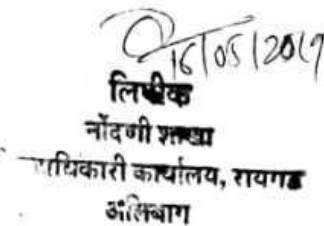 16/05/2019
लिपीक
नोंदणी शाखा
धिकारी कार्यालय, रायगड
अलिबाग